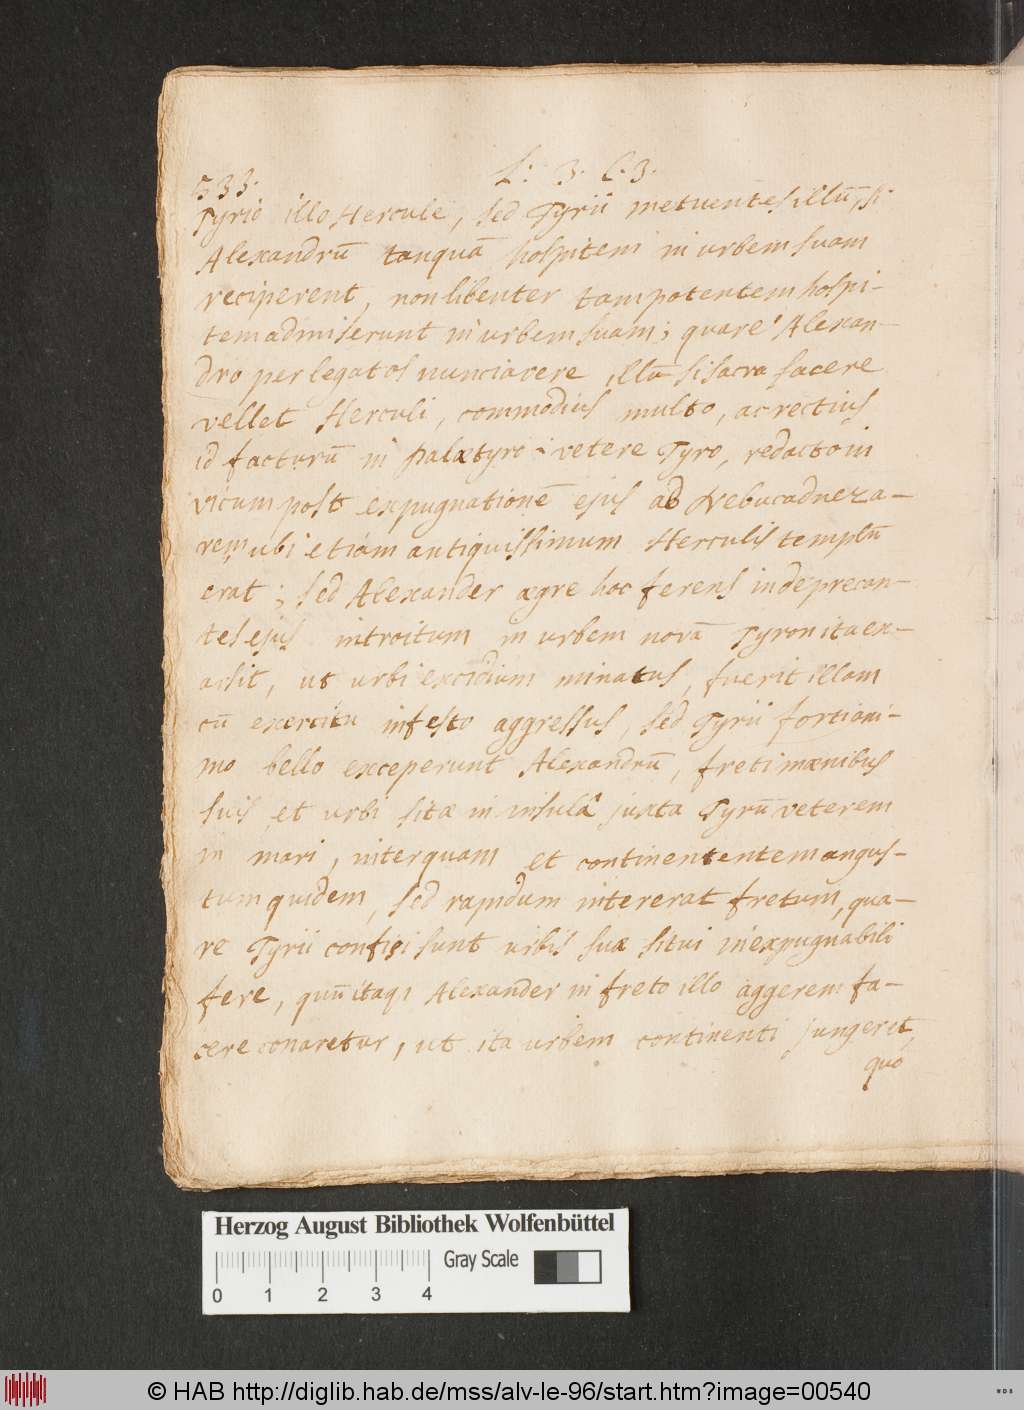 533. L: 3. C. 3.
Tyrio illo Hercule, sed Tyrii metuentes illũ, si
Alexandrũ tanquã hospitem in urbem suam
reciperent, non libenter tam potentem hospi-
tem admiserunt in urbem suam; quare Alexan-
dro per legatos nunciavere illũ si sacra facere
vellet Herculi, commodius multo, ac rectius
id facturũ in palætyro i vetere Tyro, redacto in
vicum post expugnationẽ ejus ab Nebucadneza-
rem ubi etiam antiquissimum Herculis templũ
erat; sed Alexander ægre hoc ferens inde precan-
tes ejus introitum in urbem novã Tyron ita ex-
arsit, ut urbi excidium minatus, fuerit illam
cũ exercitu infesto aggressus, sed Tyrii forti ani-
mo bello exceperunt Alexandrũ, freti mænibus
suis et urbi sitæ in insulâ juxta Tyrũ veterem
in mari, inter quam et continententem angus-
tum quidem, sed rapidum intererat fretum, qua-
re Tyrii confisi sunt urbis suæ situi inexpugnabili
fere, quũ itaqȝ Alexander in freto illo aggerem fa-
cere conaretur, ut ita urbem continenti jungeret,
quo
Herzog August Bibliothek Wolfenbüttel
Gray Scale
0 1 2 3 4
© HAB http://diglib.hab.de/mss/alv-le-96/start.htm?image=00540